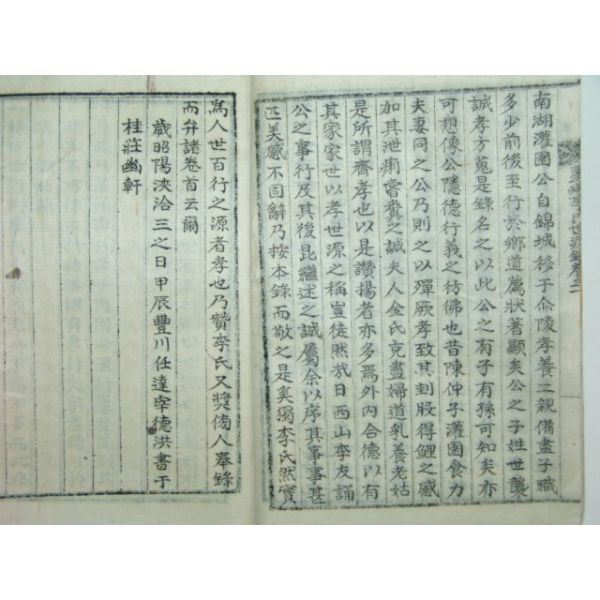 南湖灌園公自錦城移于侖陵孝養二親備盡子職
多少前後至行於鄉道薦狀著顯矣公之子姓世襲
誠孝方蒐是錄名之以此公之有子有孫可知矣亦
可想像公隱德行義之彷佛也昔陳仲子灌園食力
夫妻同之公乃則之以殫厥孝致其刲股得鯉之感
如其泄痢嘗糞之誠夫人金氏克盡婦道乳養老姑
是所謂齊孝也以是讚揚者亦多焉外內合德以有
其家家世以孝世源之稱豈徒然哉日西山李友誦
公之事行及其後昆繼述之誠屬余以序其事事甚
匹美感不固辭乃按本錄而敬之是奚獨李氏然實
爲人世百行之源者孝也乃贊李氏又獎傍人奉錄
而弁諸卷首云爾
歲昭陽浹洽三之日甲辰豐川任達宰德洪書于
桂莊幽軒